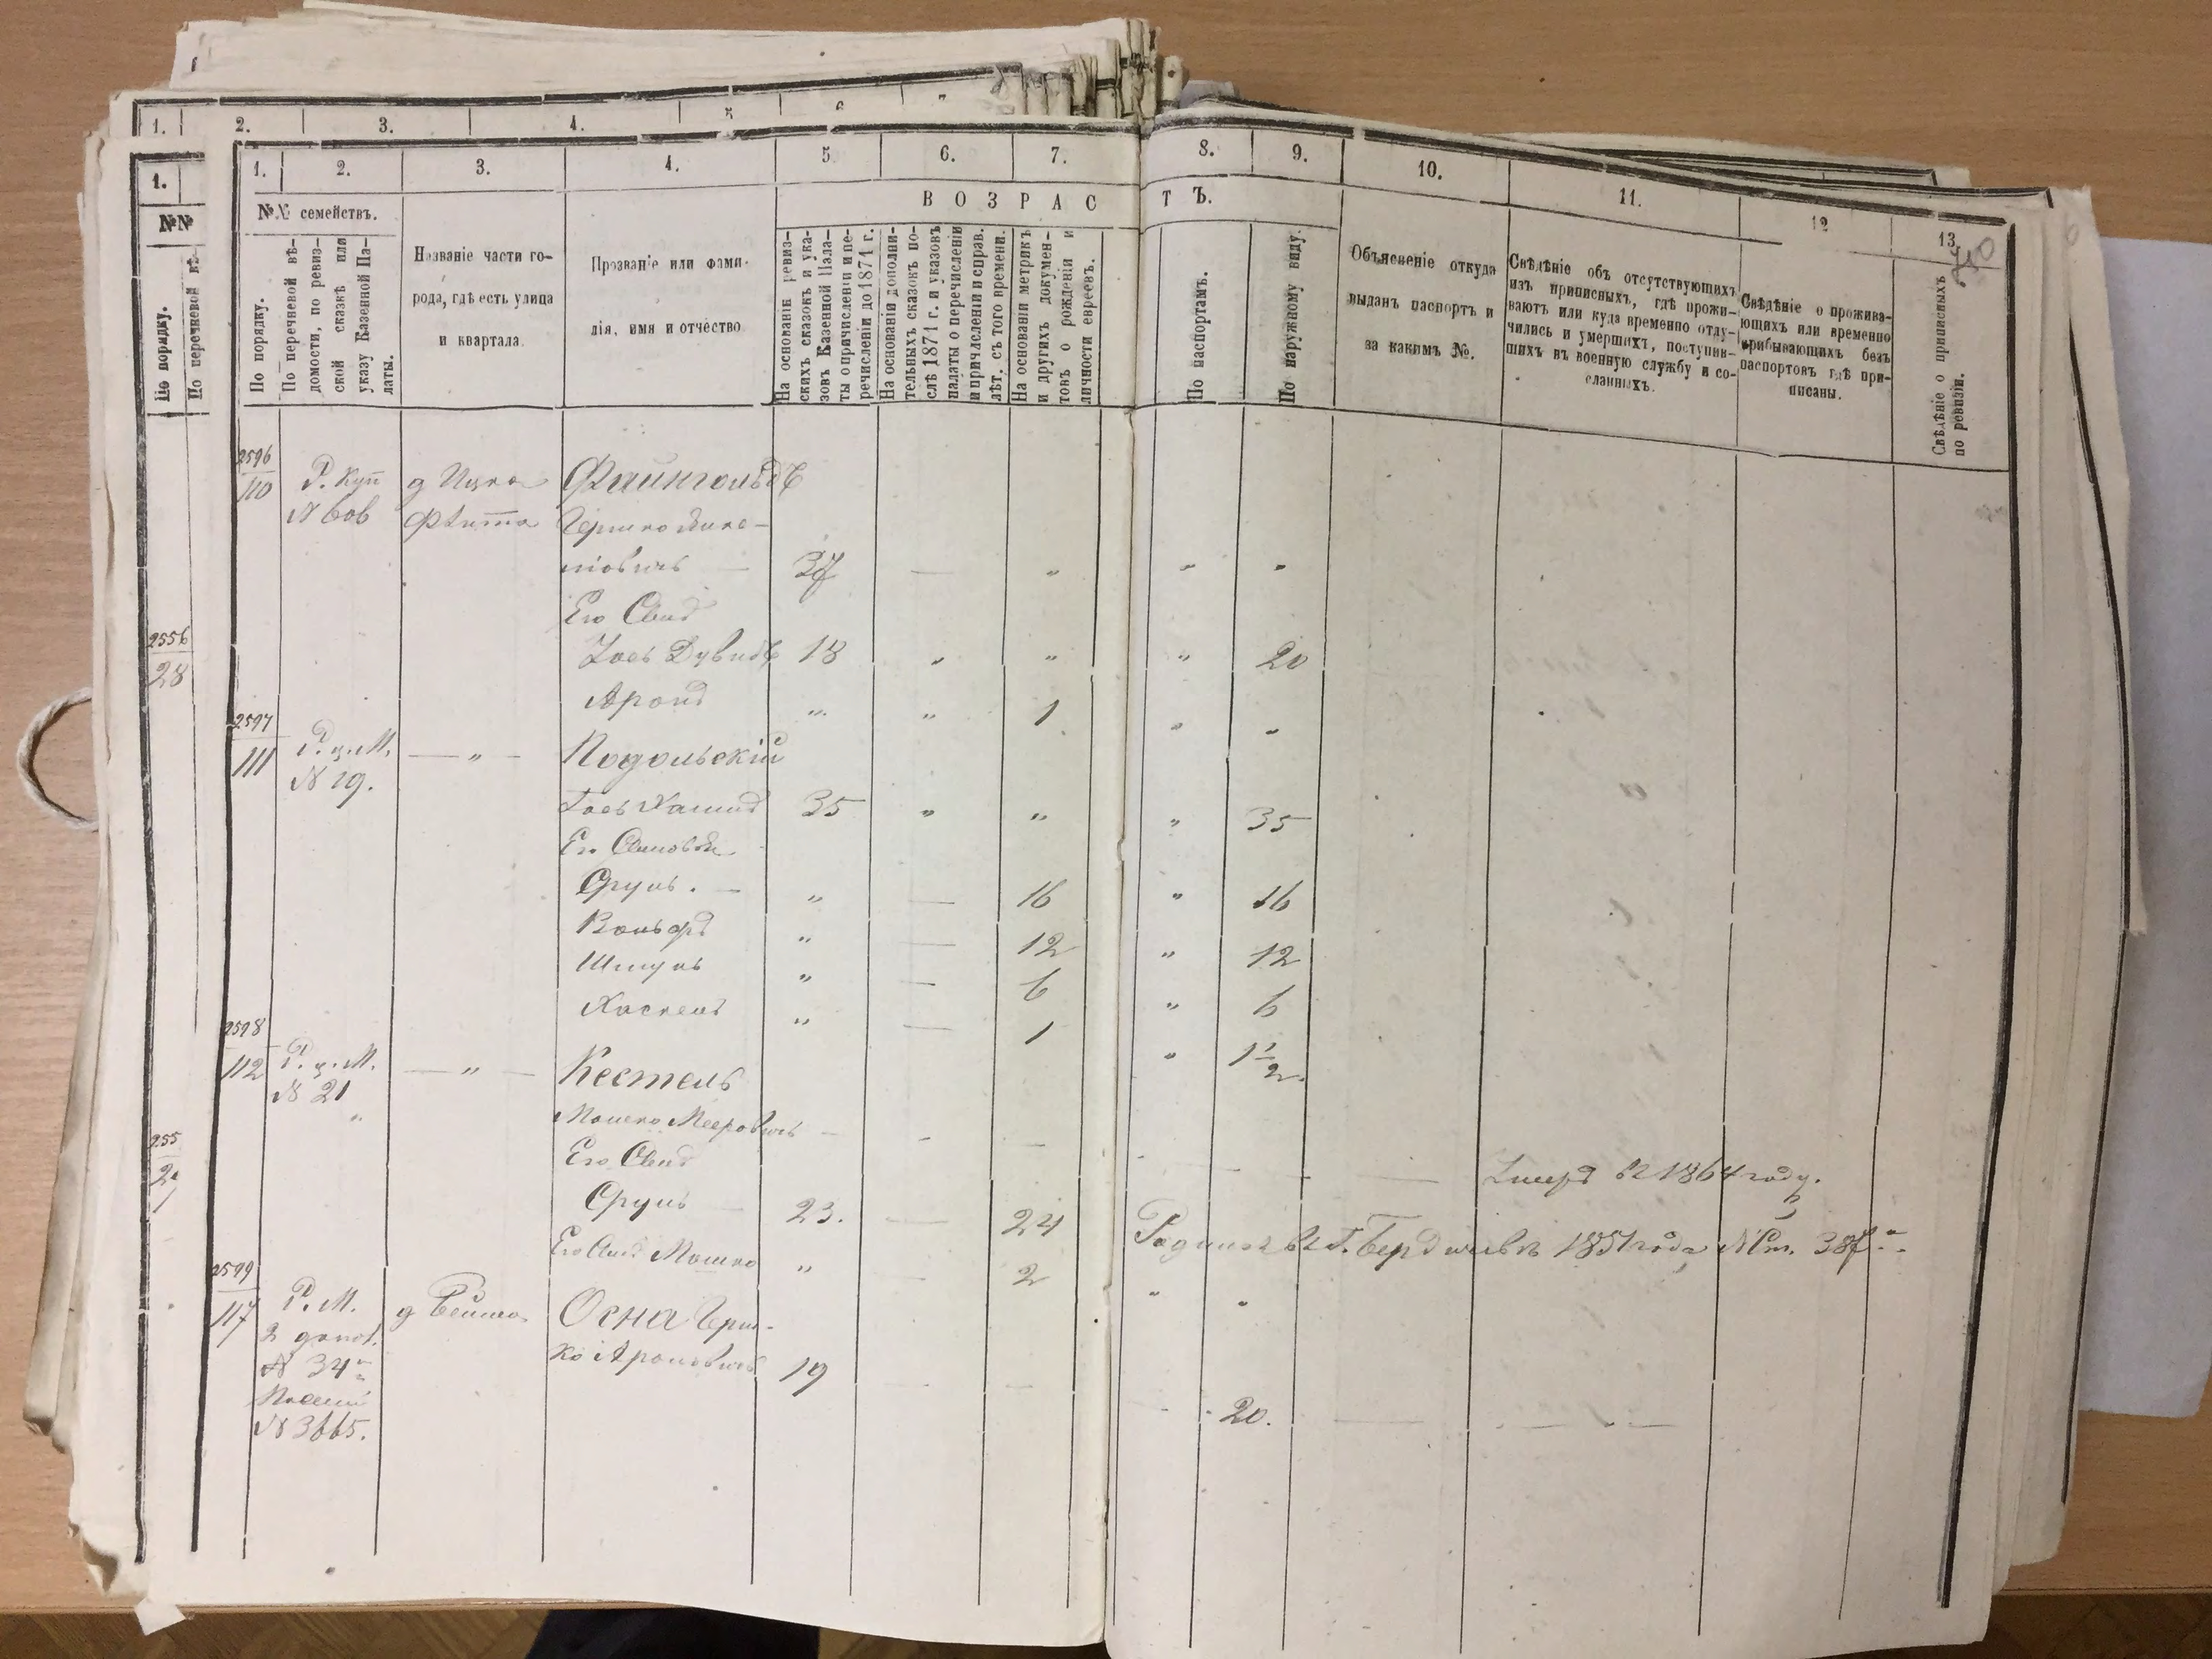 1. 2. 3. 4. 5 6 7
1.
№№
По порядку.
По перечневой вѣ-
1. 2. 3. 4. 5 6. 7. 8. 9. 10. 11. 12 13.
№№ семействъ.
ВОЗРАСТЪ.
По порядку.
По перечневой вѣ-
домости, по ревиз-
ской сказкѣ или
указу Казенной Па-
латы.
Названіе части го-
рода, гдѣ есть улица
и квартала.
Прозваніе или фами-
лія, имя и отчество
На основаніи ревиз-
скихъ сказокъ и ука-
зовъ Казенной Пала-
ты о причисленіи и пе-
речисленіи до 1871 г.
На основаніи дополни-
тельныхъ сказокъ по-
слѣ 1871 г. и указовъ
палаты о перечисленіи
и причисленіи и справ.
лѣт. съ того времени.
На основаніи метрикъ
и другихъ докумен-
товъ о рожденіи и
личности евреевъ.
По паспортамъ.
По наружному виду.
Объясненіе откуда
выданъ паспортъ и
за какимъ №.
Свѣдѣніе объ отсутствующихъ
изъ приписныхъ, гдѣ прожи-
ваютъ или куда временно отлу-
чились и умершихъ, поступив-
шихъ въ военную службу и со-
сланныхъ.
Свѣдѣніе о прожива-
ющихъ или временно
прибывающихъ безъ
паспортовъ гдѣ при-
писаны.
Свѣдѣніе о приписныхъ
по ревизіи.
2596
110 Р. Куп д Ицка Файнгольдъ
N 606 Гершко
37 — " " "
Его Сынъ
2556
28
Дувидъ 18 " " " 20
Аронъ " " 1 " "
2597
111 Р. ц. М. — " — Подольскій
N 19.
35 " " " 35
Его Сыновья
Сруль . — " — 16 " 16
Вольфъ " — 12 " 12
Шмуль " — 6 " 6
Хаскель " — 1 " 1½
2598
112 Р. ц. М. — " — Кестель
N 21
" Мошко Мееровичъ — — —
255
2
Его Сынъ — Умеръ въ 1864 году.
Сруль 23. — 24 Родился въ г. Бердичевѣ 1851 года
Его Сынъ Мошко " — 2 " "
2599
117 Р. М. д Бейша Осна Герш-
2 допол.
ко Ароновичъ 19 — — 20. — —
N 34
N 3665.